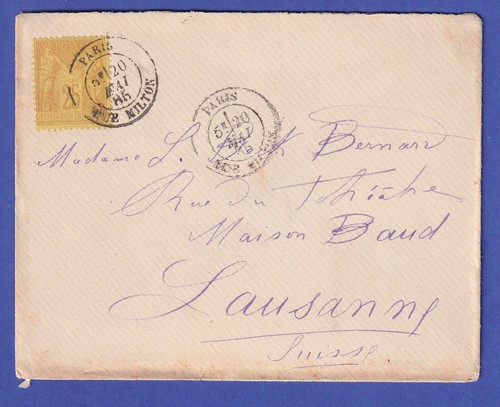 PARIS
5E/20
MAI
85
RUE MILTON
25
PARIS
5E/20
MAI
85
RUE MILTON
Madame L. Bernard
Rue du Théâtre
Maison Baud
Lausanne
Suisse